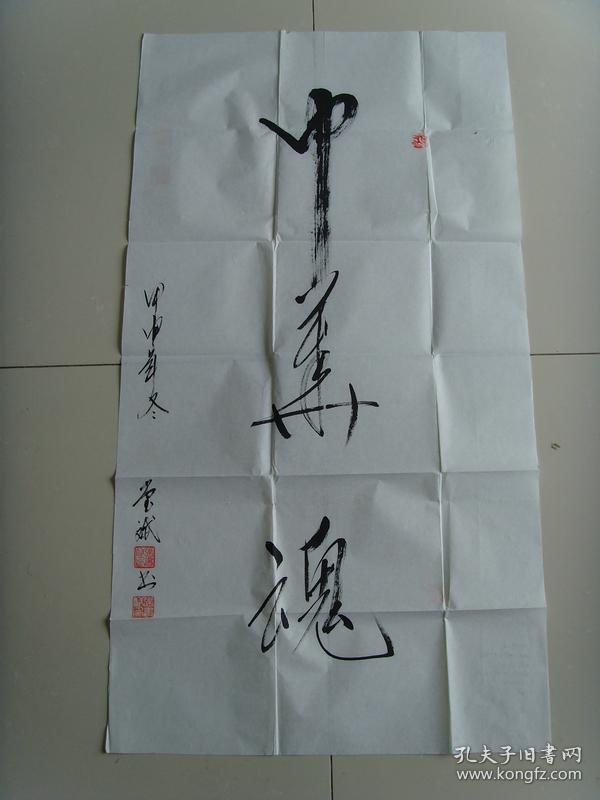 中華魂
甲申年冬
书
孔夫子旧書网
www.kongfz.com